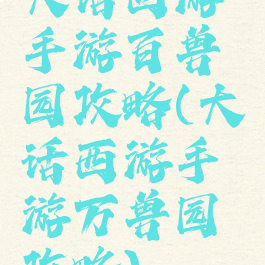 大话西游
手游百兽
园攻略(大
话西游手
游万兽园
攻略)